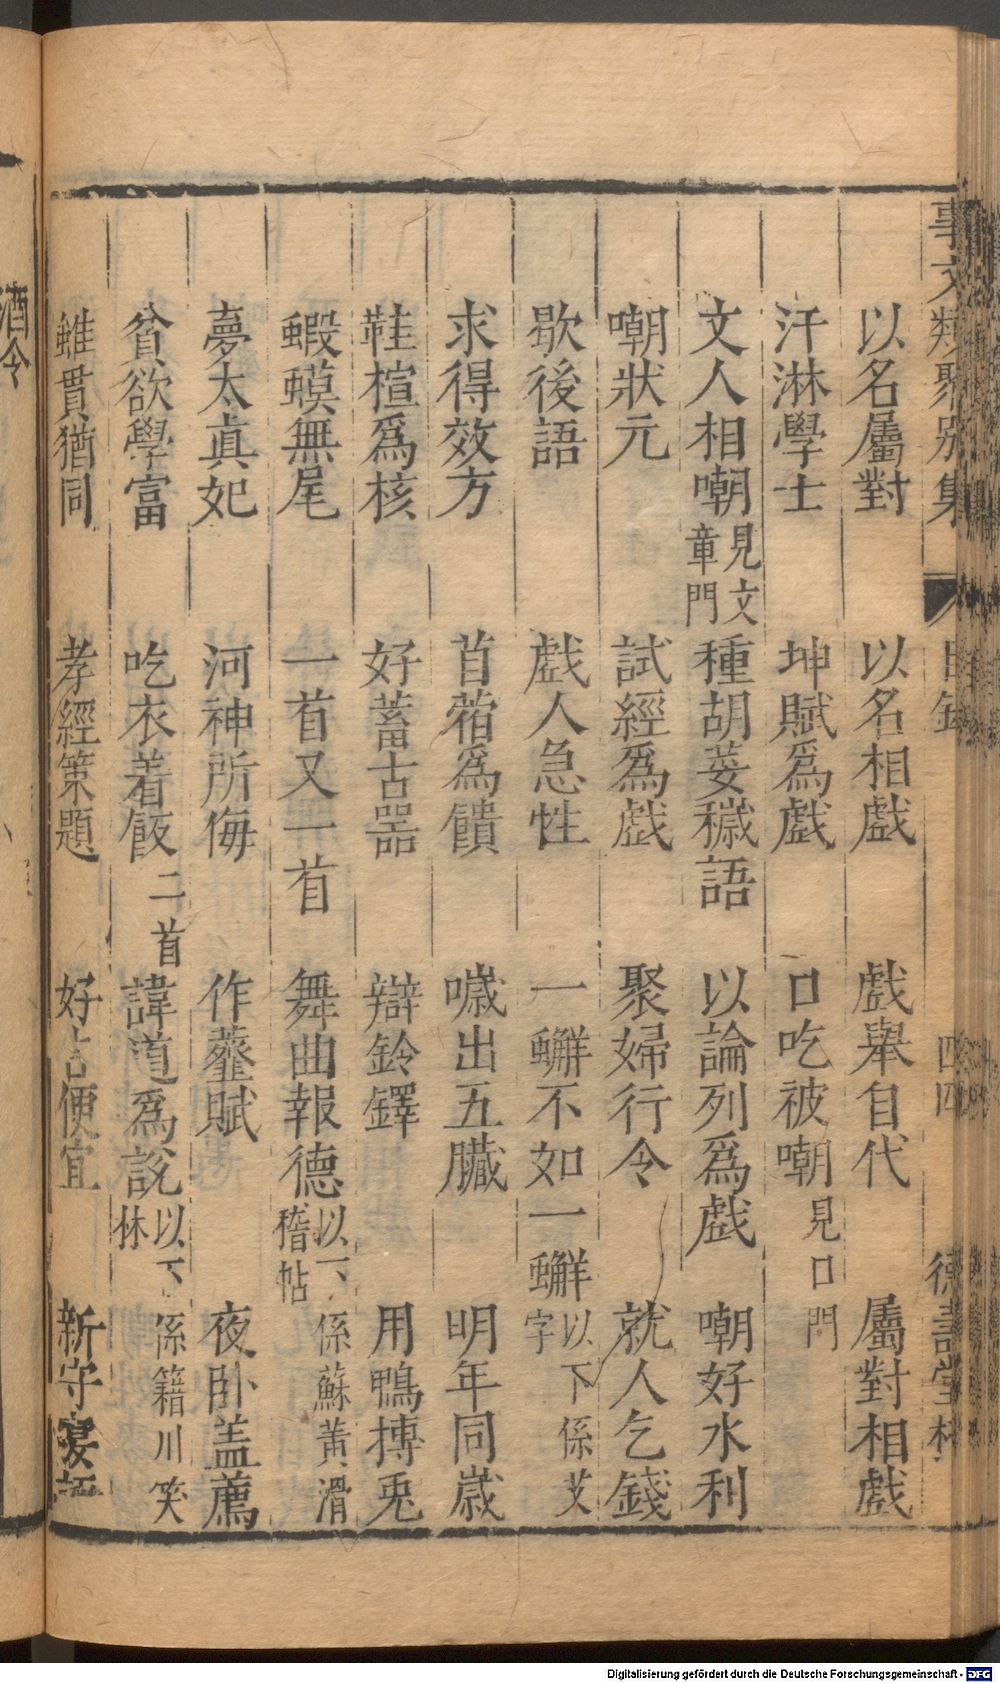 事文類聚别集 目錄 四四 德壽堂梓
以名屬對 以名相戲 戲舉自代 屬對相戲
汗淋學士 坤賦爲戲 口吃被嘲 見口門
文人相嘲 見文章門 種胡荽穢語 以論列爲戲 嘲好水利
嘲狀元 試經爲戲 聚婦行令 就人乞錢
歇後語 戲人急性 一蠏不如一蠏 以下係艾字
求得效方 苜蓿爲饋 噦出五臟 明年同歲
鞋楦爲核 好蓄古器 辯鈴鐸 用鴨搏兎
蝦蟆無尾 一首又一首 舞曲報德 以下係蘇黃滑稽帖
夢太眞妃 河神所侮 作虀賦 夜卧盖薦
貧欲學富 吃衣着飯 二首 諱道爲説 以下係籍川笑林
雖貫猶同 孝經策題 好占便宜 新守宴
酒令
Digitalisierung gefördert durch die Deutsche Forschungsgemeinschaft - DFG